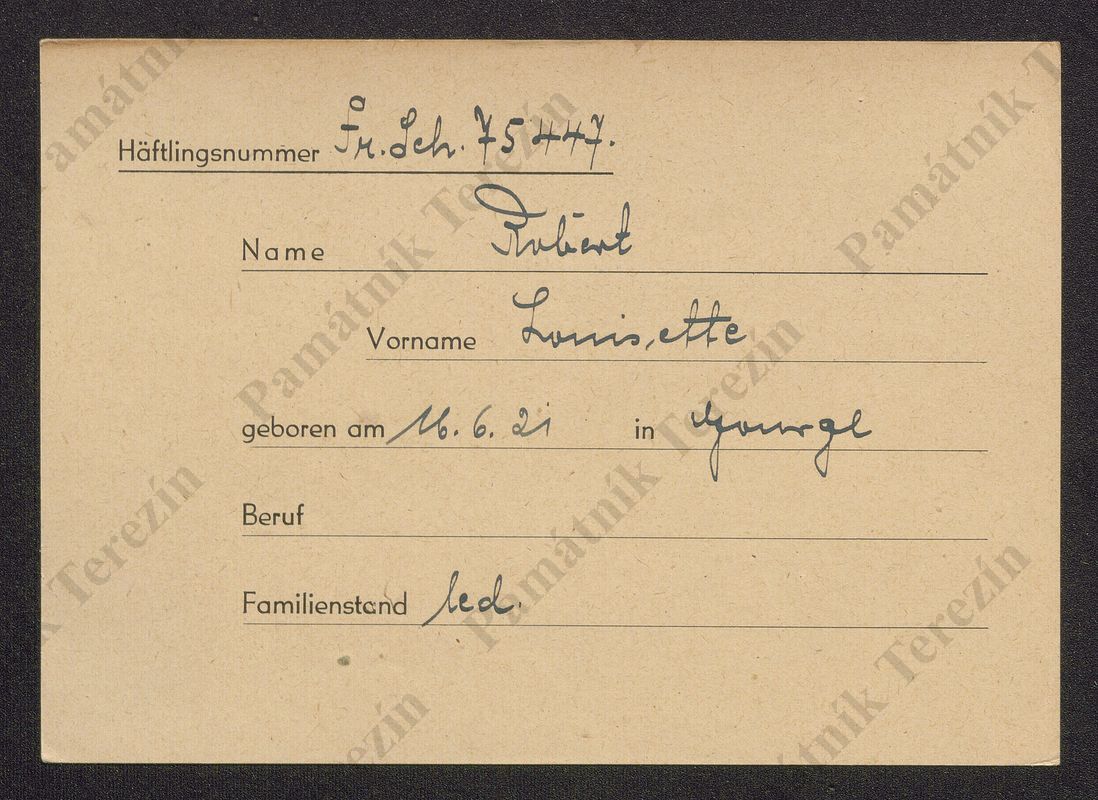 Häftlingsnummer Fr. Sch. 75 447.
Name Robert
Vorname Louisette
geboren am 16. 6. 21 in Gourgl
Beruf
Familienstand led.
Památník Terezín